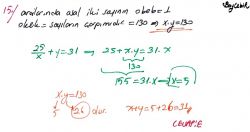 15/ aralarında asal iki sayının obeb=1
okek = sayıların çarpımıdır =130 ⇒ x.y=130
25/x + y = 31 ⇒ 25 + x.y = 31.x
130
155 = 31.x → x=5
x.y=130
5 26 dır.
x+y=5+26=31
CEVAP:E